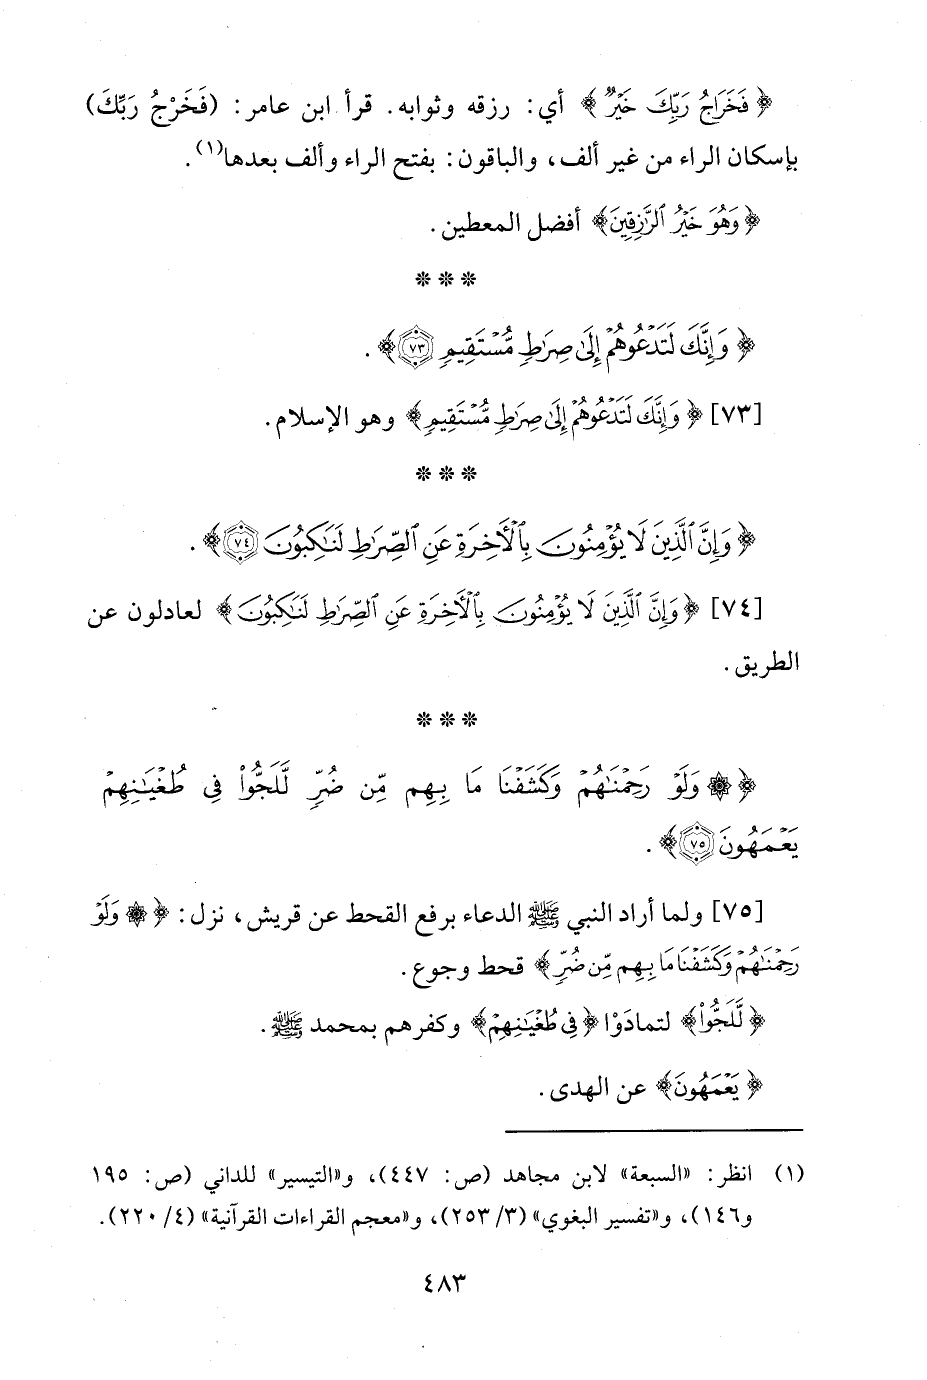 ﴿ فَخَرَاجُ رَبِّكَ خَيْرٌ ﴾ أي: رزقه وثوابه. قرأ ابن عامر: (فَخَرْجُ رَبِّكَ)
بإسكان الراء من غير ألف، والباقون: بفتح الراء وألف بعدها(١).
﴿ وَهُوَ خَيْرُ ٱلرَّٰزِقِينَ ﴾ أفضل المعطين.
* * *
﴿ وَإِنَّكَ لَتَدْعُوهُمْ إِلَىٰ صِرَٰطٍ مُّسْتَقِيمٍ ٧٣ ﴾.
[٧٣] ﴿ وَإِنَّكَ لَتَدْعُوهُمْ إِلَىٰ صِرَٰطٍ مُّسْتَقِيمٍ ﴾ وهو الإسلام.
* * *
﴿ وَإِنَّ ٱلَّذِينَ لَا يُؤْمِنُونَ بِٱلْأَخِرَةِ عَنِ ٱلصِّرَٰطِ لَنَٰكِبُونَ ٧٤ ﴾.
[٧٤] ﴿ وَإِنَّ ٱلَّذِينَ لَا يُؤْمِنُونَ بِٱلْأَخِرَةِ عَنِ ٱلصِّرَٰطِ لَنَٰكِبُونَ ﴾ لعادلون عن
الطريق.
* * *
﴿ ۞ وَلَوْ رَحِمْنَٰهُمْ وَكَشَفْنَا مَا بِهِم مِّن ضُرٍّ لَّلَجُّوا۟ فِى طُغْيَٰنِهِمْ
يَعْمَهُونَ ٧٥ ﴾.
[٧٥] ولما أراد النبي ﷺ الدعاء برفع القحط عن قريش، نزل: ﴿ ۞ وَلَوْ
رَحِمْنَٰهُمْ وَكَشَفْنَا مَا بِهِم مِّن ضُرٍّ ﴾ قحط وجوع.
﴿ لَّلَجُّوا۟ ﴾ لتمادَوْا ﴿ فِى طُغْيَٰنِهِمْ ﴾ وكفرهم بمحمد ﷺ.
﴿ يَعْمَهُونَ ﴾ عن الهدى.
(١) انظر: «السبعة» لابن مجاهد (ص: ٤٤٧)، و«التيسير» للداني (ص: ١٩٥
و١٤٦)، و«تفسير البغوي» (٣/ ٢٥٣)، و«معجم القراءات القرآنية» (٤/ ٢٢٠).
٤٨٣